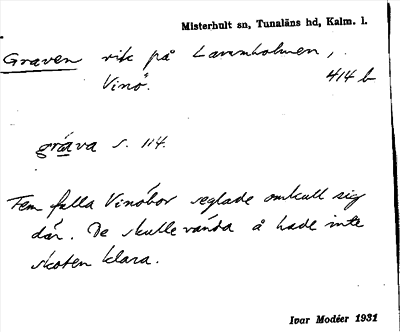 Misterhult sn, Tunaläns hd, Kalm. l.
Graven vik på Lammholmen,
Vinö. 414 b
gräva s. 114.
Fem fulla Vinöbor seglade omkull sig
där. De skulle vända å hade inte
skoten klara.
Ivar Modéer 1931